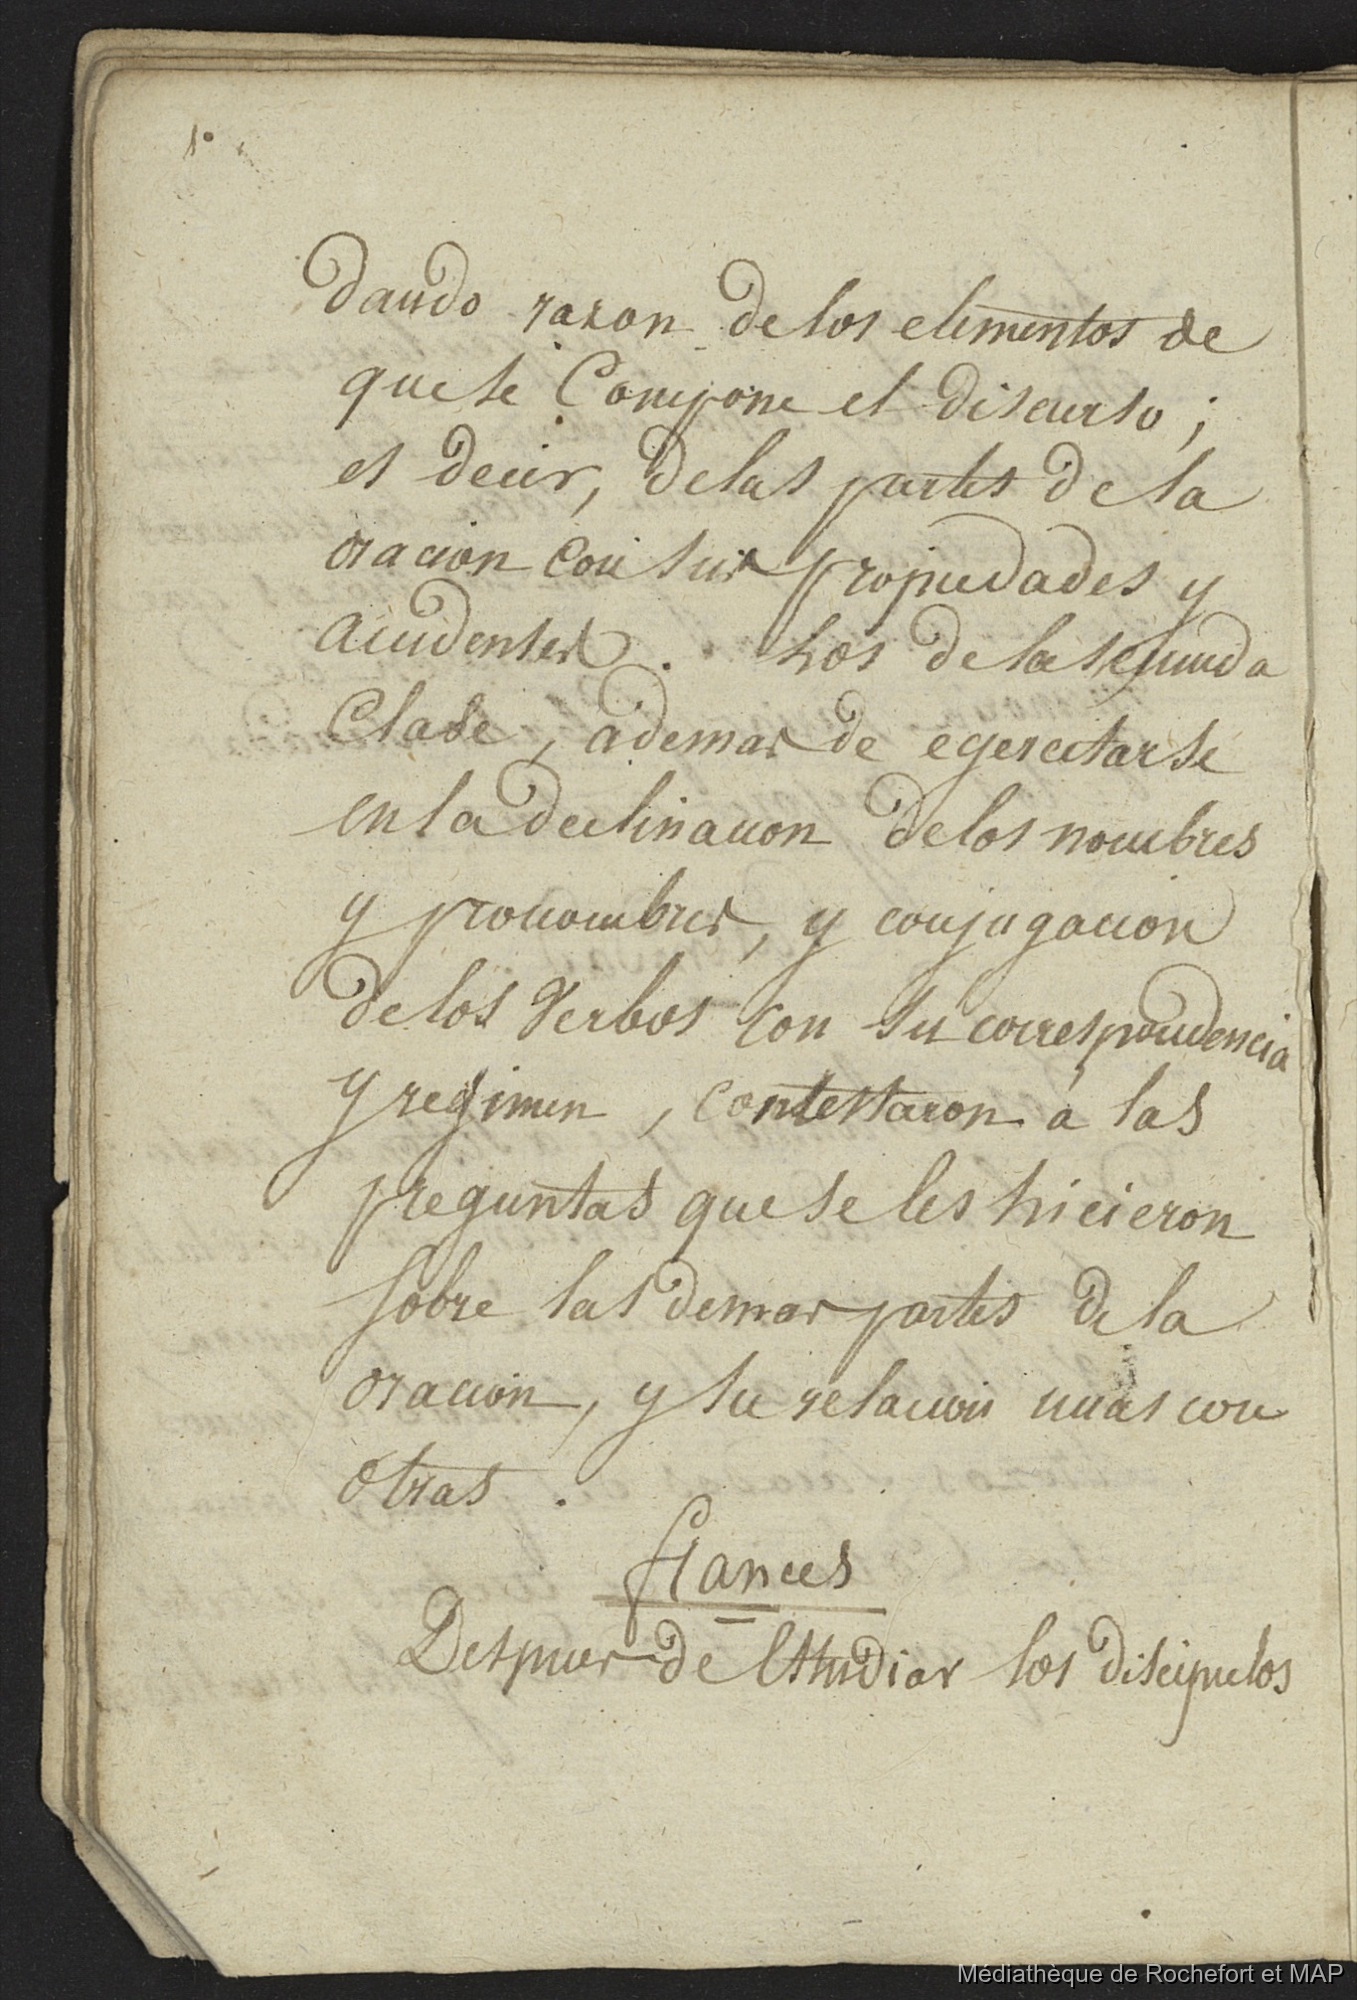 dando razon de los elementos de
que se Compone el discurso;
es decir, de las partes de la
oracion con sus propiedades y
accidentes. Los de la segunda
Clase, ademas de egercitarse
en la declinacion de los nombres
y pronombres, y conjugacion
de los Verbos con su correspondencia
y regimen, contestaron á las
preguntas que se les hicieron
sobre las demas partes de la
oracion, y su relacion unas con
otras.
frances
Despues de Estudiar los discipulos
Médiathèque de Rochefort et MAP